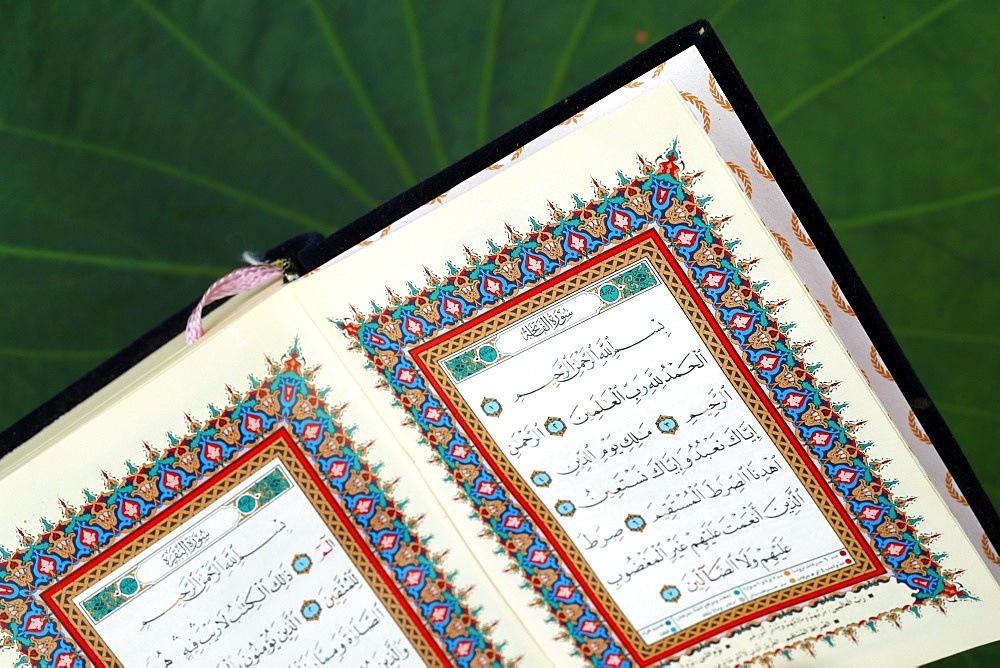 سورة الفاتحة
بِسْمِ اللَّهِ الرَّحْمَٰنِ الرَّحِيمِ ١
الْحَمْدُ لِلَّهِ رَبِّ الْعَٰلَمِينَ ٢ الرَّحْمَٰنِ
الرَّحِيمِ ٣ مَٰلِكِ يَوْمِ الدِّينِ ٤
إِيَّاكَ نَعْبُدُ وَإِيَّاكَ نَسْتَعِينُ ٥
اهْدِنَا الصِّرَٰطَ الْمُسْتَقِيمَ ٦ صِرَٰطَ
الَّذِينَ أَنْعَمْتَ عَلَيْهِمْ غَيْرِ الْمَغْضُوبِ
عَلَيْهِمْ وَلَا الضَّالِّينَ ٧
سورة البقرة
بِسْمِ اللَّهِ الرَّحْمَٰنِ الرَّحِيمِ
الٓمٓ ١ ذَٰلِكَ الْكِتَٰبُ لَا رَيْبَ فِيهِ
لِلْمُتَّقِينَ ٢ الَّذِينَ يُؤْمِنُونَ
الصَّلَوٰةَ وَمِمَّا
وَالَّذِينَ